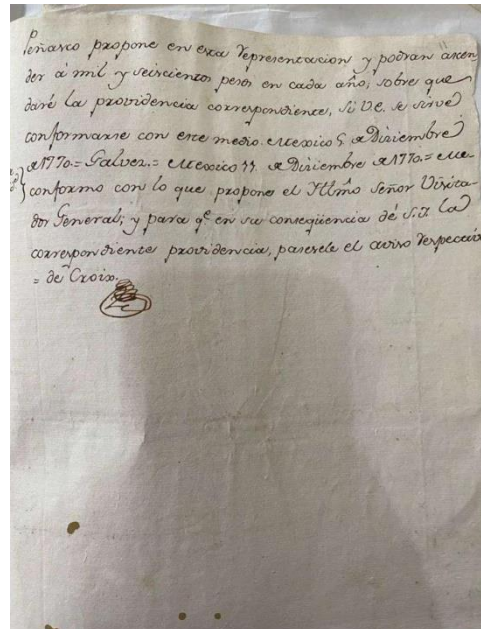 Peñasco propone en esta representacion y podran ascen-
der á mil y seiscientos pesos en cada año, sobre que
daré la providencia correspondiente, si V.E. se sirve
conformarse con este medio. Mexico 5 de Diziembre
de 1770.= Galvez.= Mexico 11 de Diziembre de 1770.= Me
conformo con lo que propone el Yllmo Señor Visita-
dor General; y para qe en su conseqüencia dé S.I. la
correspondiente providencia, pasesele el aviso respectivo
= de Croix.